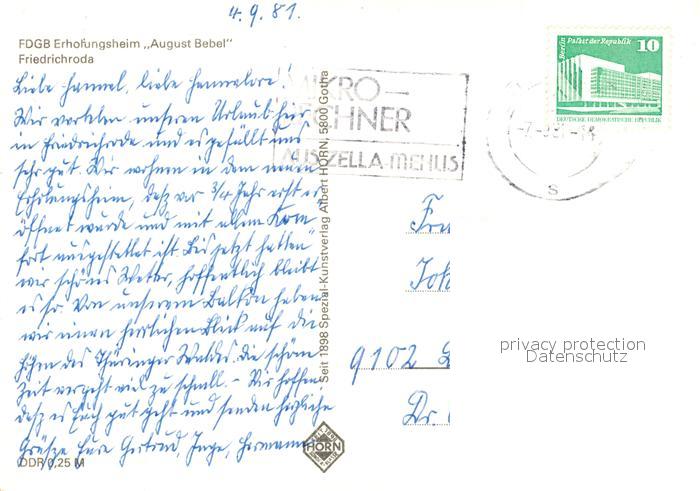 4.9.81.
FDGB Erholungsheim „August Bebel"
Friedrichroda
Liebe Hannel, liebe Hannelore!
Wir verleben unseren Urlaub hier
in Friedrichroda und es gefällt uns
sehr gut. Wir wohnen in dem neuen
Erholungsheim, das vor 3/4 Jahr erst er
öffnet wurde und mit allem Kom
fort ausgestattet ist. Bis jetzt hatten
wir schönes Wetter, hoffentlich bleibt
es so. Von unserem Balkon haben
wir einen herrlichen Blick auf die
Höhen des Thüringer Waldes. Die schöne
Zeit vergeht viel zu schnell. - Wir hoffen
dass es Euch gut geht und senden herzliche
Grüsse Eure Gertrud, Inge, Hermann
DDR 0,25 M
Seit 1898 Spezial-Kunstverlag Albert HORN, 5800 Gotha
HORN
MIKRO-
RECHNER
AUS ZELLA-MEHLIS
Berlin Palast der Republik 10
DEUTSCHE DEMOKRATISCHE REPUBLIK
s
9102
Dr.
privacy protection
Datenschutz